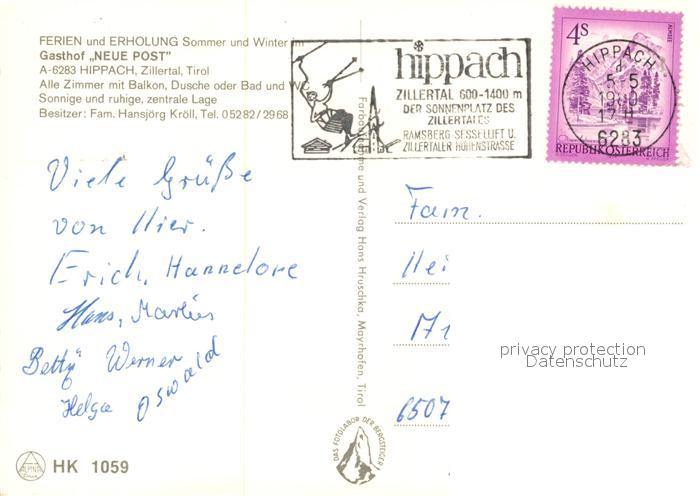 FERIEN und ERHOLUNG Sommer und Winter im
Gasthof „NEUE POST"
A-6283 HIPPACH, Zillertal, Tirol
Alle Zimmer mit Balkon, Dusche oder Bad und WC
Sonnige und ruhige, zentrale Lage
Besitzer: Fam. Hansjörg Kröll, Tel. 05282/2968
hippach
ZILLERTAL 600-1400 m
DER SONNENPLATZ DES
ZILLERTALES
RAMSBERG-SESSELLIFT U.
ZILLERTALER HÖHENSTRASSE
4S
ALMSEE
REPUBLIK ÖSTERREICH
HIPPACH
5.5
6283
Viele Grüße
von Hier.
Erich, Hannelore
Hans, Marlies
Betty Werner
Helga Oswald
und Verlag Hans Hruschka, Mayrhofen, Tirol
Fam.
Hei
6507
privacy protection
Datenschutz
DAS FOTOLABOR DER BERGSTEIGER
ALPINA
HK 1059